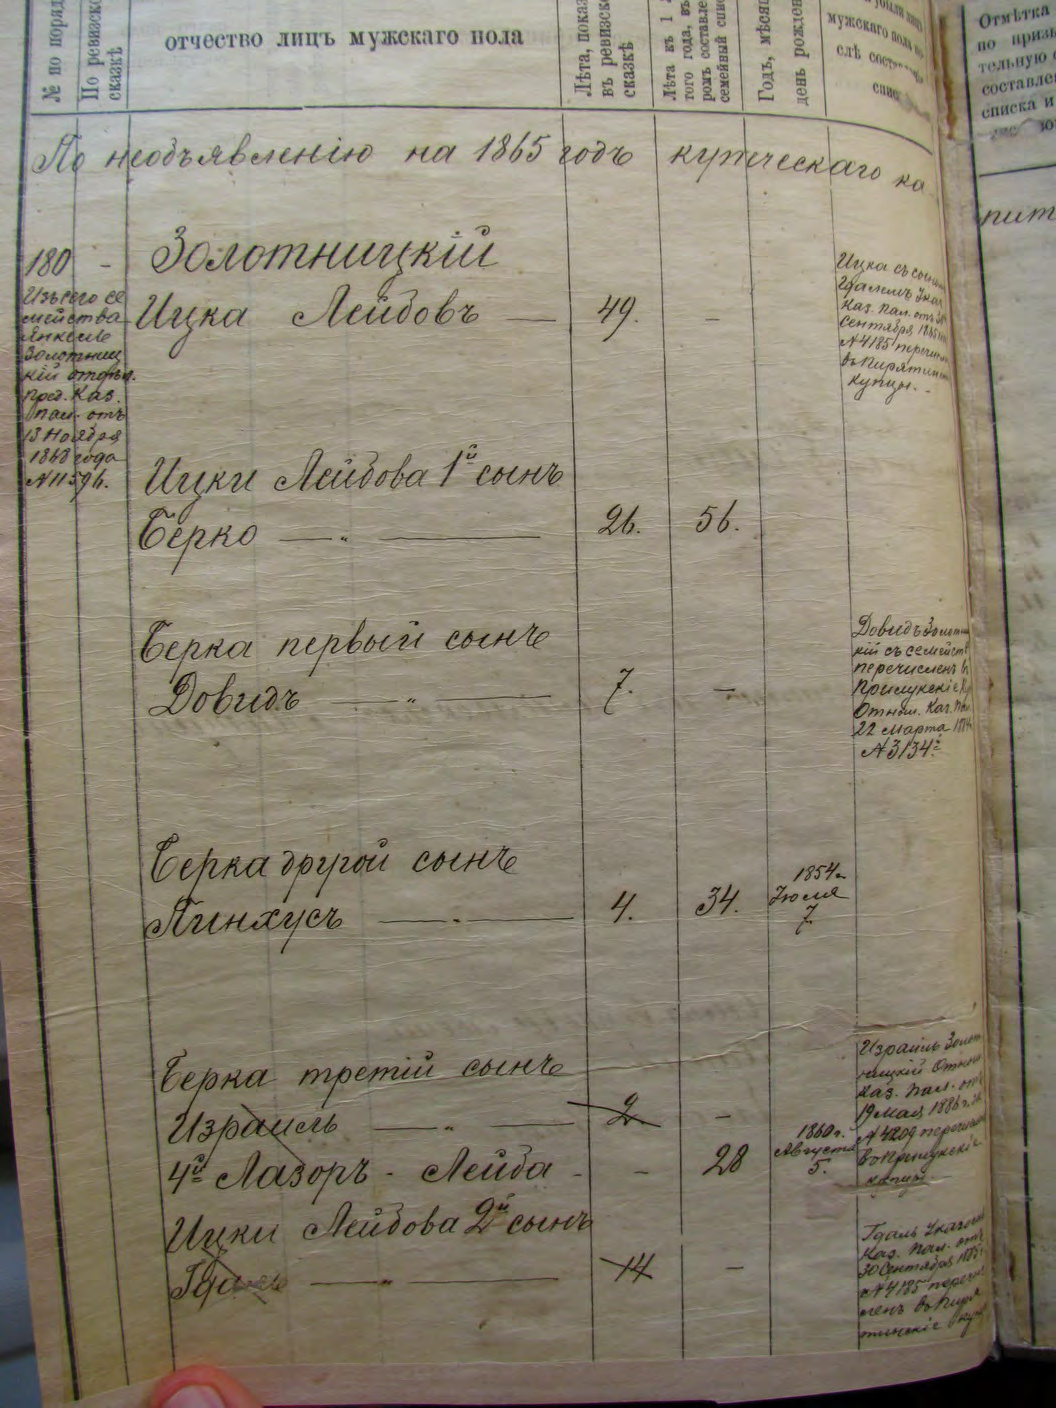 № по поряд
По ревизско
сказкѣ
отчество лицъ мужскаго пола
Лѣта, показ
въ ревизско
сказкѣ
Лѣта къ 1
того года, въ
ромъ составле
семейный спис
Годъ, мѣсяц
день рожден
мужскаго пола по
слѣ сост
спис
Отмѣтка
по призы
тельную
составле
списка и
По необъявленію на 1865 годъ купческаго ка
пит
180 -
Золотницкій
Изъ сего се
мейства
Янкель
Золотниц
кій отдѣл.
пред. Каз.
Пал. отъ
13 Ноября
1868 года
№ 11596.
Ицка Лейбовъ — 49. –
Ицка съ сыном
Гдалемъ Указ
Каз. Пал. отъ 30
Сентября 1865
№ 4185 перечис
въ Пирятин
купцы. -
Ицки Лейбова 1й сынъ
Берко — „ — 26. 56.
Берка первый сынъ
Довидъ — „ — 7. –
Довидъ Золотни
кій съ семейств
перечисленъ въ
Прилукскіе Ку
Отнош. Каз. Пал
22 Марта 187
№ 3134.
Берка другой сынъ
Пинхусъ — „ — 4. 34.
1854 г.
Іюля
7.
Берка третій сынъ
Израиль — „ — 2 –
Израиль Золот
ницкій Отнош
Каз. Пал. отъ
19 Мая 1886 г. за
№ 4209 перечислен
въ Прилукскіе
купцы
4й Лазоръ - Лейба - - 28
1860 г.
Августа
5.
Ицки Лейбова 2й сынъ
Гдаль — „ — 14 –
Гдаль Указомъ
Каз. Пал. отъ
30 Сентября 1865
№ 4185 перечис
ленъ въ Пиря
тинскіе куп